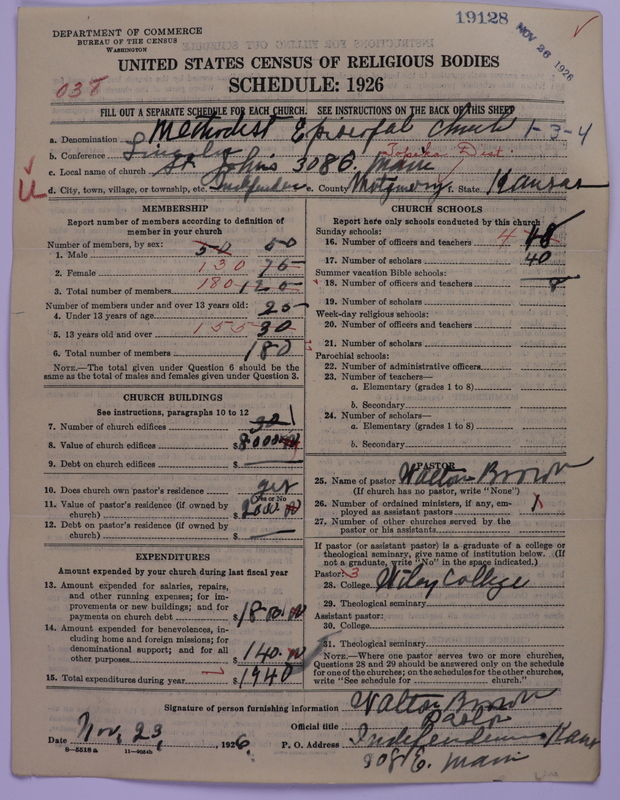 DEPARTMENT OF COMMERCE
BUREAU OF THE CENSUS
WASHINGTON
19128
NOV 26 1926
UNITED STATES CENSUS OF RELIGIOUS BODIES
038
SCHEDULE: 1926
FILL OUT A SEPARATE SCHEDULE FOR EACH CHURCH. SEE INSTRUCTIONS ON THE BACK OF THIS SHEET
a. Denomination Methodist Episcopal Church 1-3-4
b. Conference Lincoln Topeka Dist.
c. Local name of church St. Johns 308 E. Main
d. City, town, village, or township, etc. e. County f. State Kansas
MEMBERSHIP
Report number of members according to definition of member in your church
Number of members, by sex:
1. Male 50 50
2. Female 130 75
3. Total number of members 180 125
Number of members under and over 13 years old:
4. Under 13 years of age 25
5. 13 years old and over 155 30
6. Total number of members 180
NOTE.—The total given under Question 6 should be the
same as the total of males and females given under Question 3.
CHURCH BUILDINGS
See instructions, paragraphs 10 to 12
7. Number of church edifices 1
8. Value of church edifices $8000.00
9. Debt on church edifices $
10. Does church own pastor's residence yes
Yes or No
11. Value of pastor's residence (if owned by
church) $2000.00
12. Debt on pastor's residence (if owned by
church) $
EXPENDITURES
Amount expended by church during last fiscal year
13. Amount expended for salaries, repairs,
and other running expenses; for im-
provements or new buildings; and for
payments on church debt $1800.00
14. Amount expended for benevolences, in-
cluding home and foreign missions; for
denominational support; and for all
other purposes $140.00
15. Total expenditures during year $1940
CHURCH SCHOOLS
Report here only schools conducted by this church
Sunday schools:
16. Number of officers and teachers 4
17. Number of scholars 40
Summer vacation Bible schools:
18. Number of officers and teachers 8
19. Number of scholars
Week-day religious schools:
20. Number of officers and teachers
21. Number of scholars
Parochial schools:
22. Number of administrative officers
23. Number of teachers—
a. Elementary (grades 1 to 8)
b. Secondary
24. Number of scholars—
a. Elementary (grades 1 to 8)
b. Secondary
PASTOR
25. Name of pastor Walton Brown
(If church has no pastor, write "None")
26. Number of ordained ministers, if any, em-
ployed as assistant pastors 1
27. Number of other churches served by the
pastor or his assistants
If pastor (or assistant pastor) is a graduate of a college or
theological seminary, give name of institution below. (If
not a graduate, write "No" in the space indicated.)
Pastor: 3
28. College Wiley College
29. Theological seminary
Assistant pastor:
30. College
31. Theological seminary
NOTE.—Where one pastor serves two or more churches,
Questions 28 and 29 should be answered only on the schedule
for one of the churches; on the schedules for the other churches,
write "See schedule for church."
Signature of person furnishing information Walton Brown
Official title Pastor
Date Nov. 23, 1926. P. O. Address Kans
308 E. Main
8—5518 a